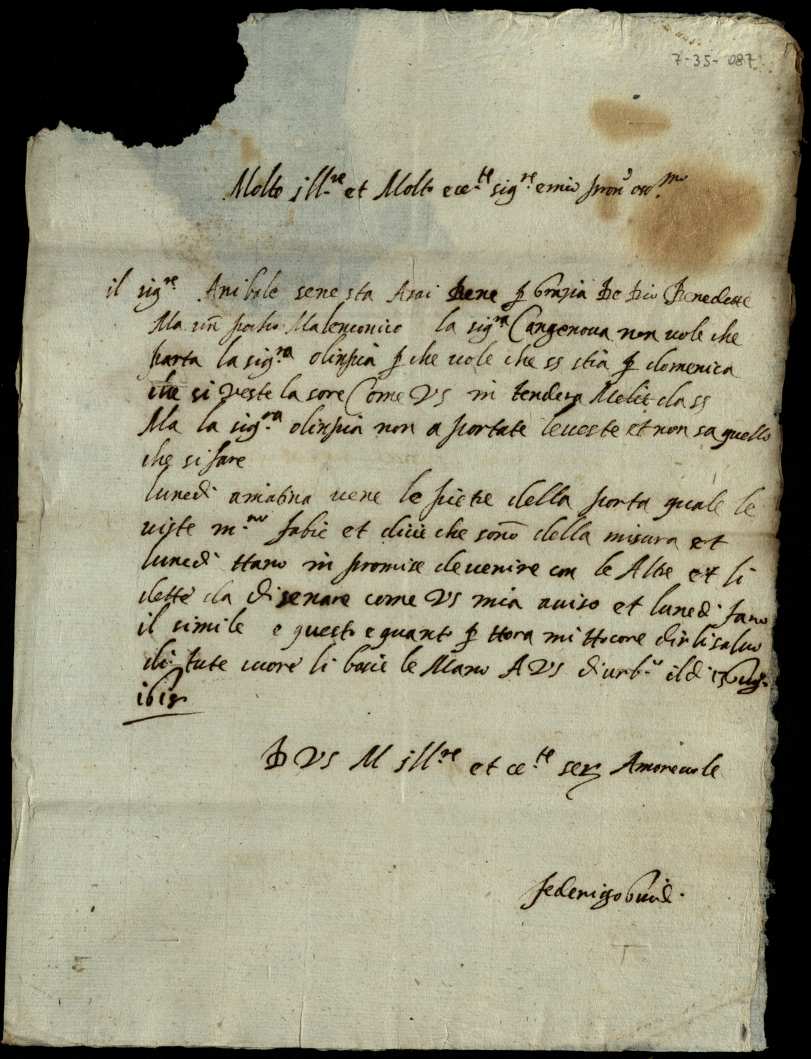 7-35-087
Molto ill.re et Molto ecc.te sig.re e mio pron' oss.mo
il sig.re Anibale sene sta Asai bene p grazia de dio benedette
Ma un pocho Malenconico la sig.ra Cangenova non vole che
parta la sig.ra olinpia p che vole che ss stia p domenica
che si veste la sore Come VS in tendera
Ma la sig.ra olinpia non a portate le veste et non sa quello
che si fare
lunedi amatina vene le pietre della porta quale le
viste m.ro fabie et dice che sono della misura et
lunedi ttano in promise de venire con le Altre et li
dette da disenare come VS mia aviso et lunedi fano
il simile e questo e quanto p ttora mi ttocore dirli salvo
di tute cuore li bacie le Mano A VS di urb.o il di 15
1618
D VS M ill.re et ce.te ser Amorevole
federigo